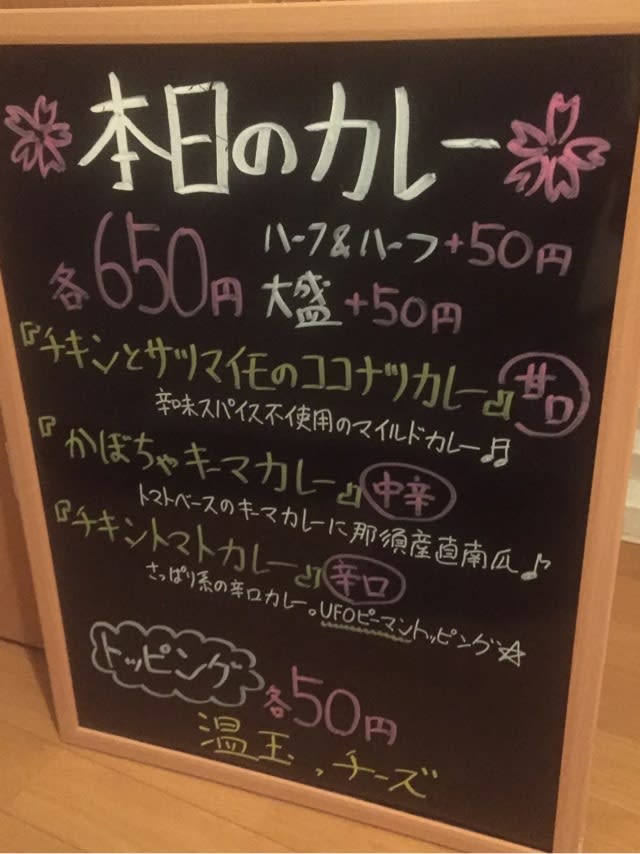 本日のカレー
各650円
ハーフ&ハーフ+50円
大盛+50円
『チキンとサツマイモのココナツカレー』甘口
辛味スパイス不使用のマイルドカレー♬
『かぼちゃキーマカレー』中辛
トマトベースのキーマカレーに那須産直南瓜♪
『チキントマトカレー』辛口
さっぱり系の辛口カレー。UFOピーマントッピング☆
トッピング 各50円
温玉、チーズ